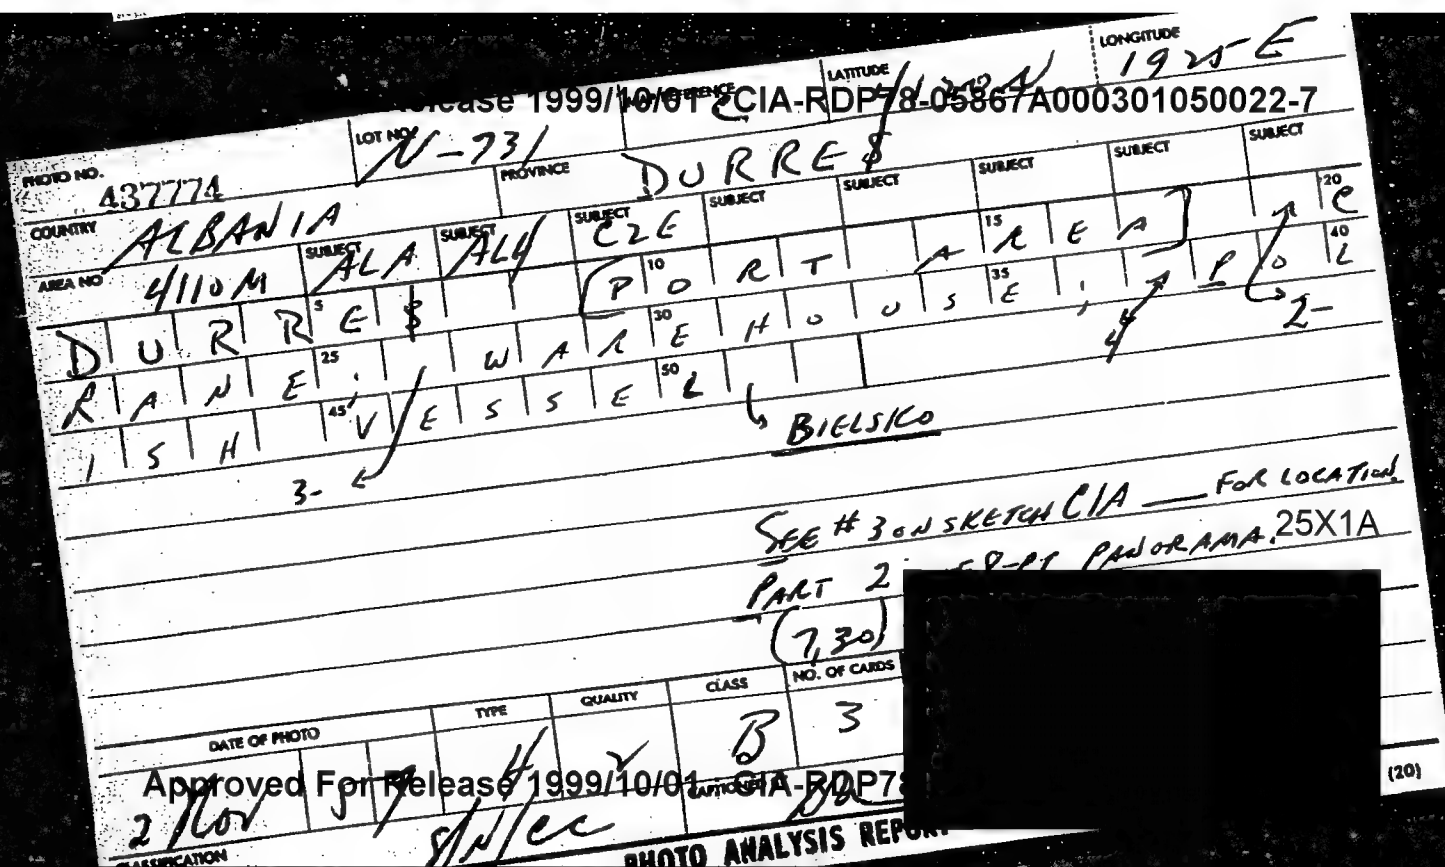 LATITUDE LONGITUDE
1925-E
Release 1999/10/01 : CIA-RDP78-05867A000301050022-7
PHOTO NO. 437774 LOT NO. N-731
COUNTRY ALBANIA PROVINCE DURRES
AREA NO 4110M SUBJECT ALA SUBJECT AL4 SUBJECT C2E SUBJECT SUBJECT SUBJECT SUBJECT SUBJECT
DURRES 5 (PORT AREA] 10 15 20 C
RANE; 25 WAREHOUSE; 30 35 POL 40
ISH 45 VESSEL 50
2-
4
3-
BIELSKO
SEE #3 ON SKETCH CIA — FOR LOCATION.
25X1A
PART 2 PANORAMA.
(7,30)
DATE OF PHOTO TYPE QUALITY CLASS NO. OF CARDS
B 3
Approved For Release 1999/10/01 : CIA-RDP78
2 Nov 57 (20)
S/N/CC
CLASSIFICATION PHOTO ANALYSIS REPORT